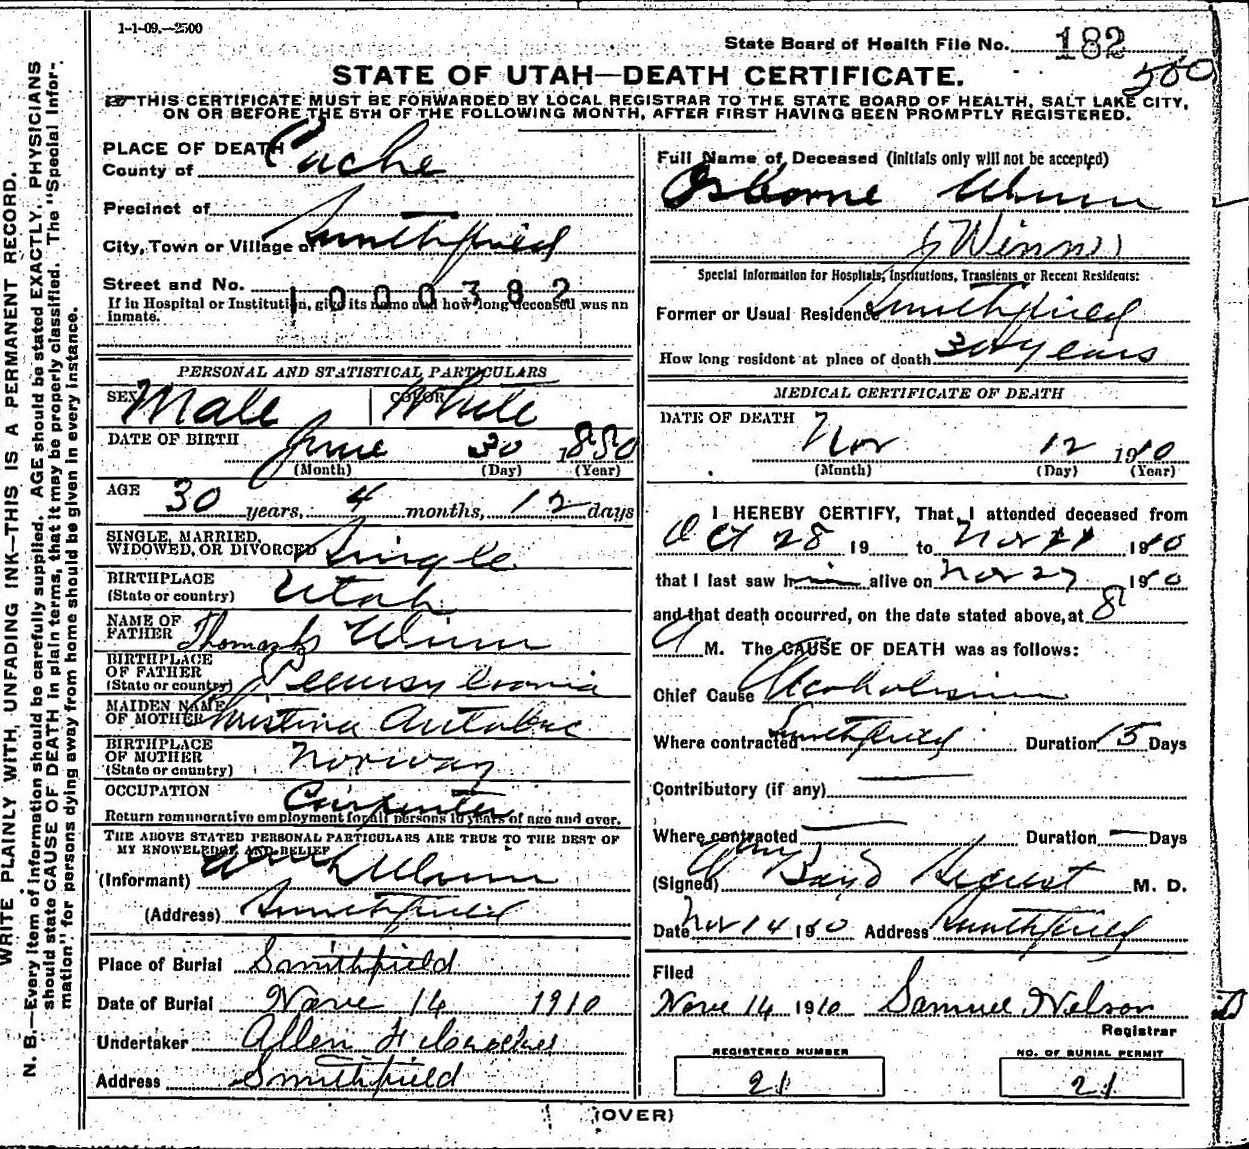 1-1-09.—2500
State Board of Health File No. 182
500
STATE OF UTAH—DEATH CERTIFICATE.
THIS CERTIFICATE MUST BE FORWARDED BY LOCAL REGISTRAR TO THE STATE BOARD OF HEALTH, SALT LAKE CITY,
ON OR BEFORE THE 5TH OF THE FOLLOWING MONTH, AFTER FIRST HAVING BEEN PROMPTLY REGISTERED.
WRITE PLAINLY WITH, UNFADING INK—THIS IS A PERMANENT RECORD.
N. B.—Every item of information should be carefully supplied. AGE should be stated EXACTLY, PHYSICIANS
should state CAUSE OF DEATH in plain terms, that it may be properly classified. The "Special Infor-
mation" for persons dying away from home should be given in every instance.
PLACE OF DEATH
County of Cache
Precinct of
City, Town or Village of Smithfield
Street and No.
1000382
If in Hospital or Institution, give its name and how long deceased was an
inmate.
PERSONAL AND STATISTICAL PARTICULARS
SEX Male COLOR White
DATE OF BIRTH June 30 1880
(Month) (Day) (Year)
AGE 30 years, 4 months, 12 days
SINGLE, MARRIED,
WIDOWED, OR DIVORCED Single
BIRTHPLACE
(State or country) Utah
NAME OF
FATHER Thomas Winn
BIRTHPLACE
OF FATHER
(State or country) Pennsylvania
MAIDEN NAME
OF MOTHER Christina
BIRTHPLACE
OF MOTHER
(State or country) Norway
OCCUPATION Carpenter
Return remunerative employment for all persons 10 years of age and over.
THE ABOVE STATED PERSONAL PARTICULARS ARE TRUE TO THE BEST OF
MY KNOWLEDGE AND BELIEF
(Informant) Winn
(Address) Smithfield
Place of Burial Smithfield
Date of Burial Nove 14 1910
Undertaker Allen
Address Smithfield
Full Name of Deceased (Initials only will not be accepted)
Osborne Winn
(Winn)
Special Information for Hospitals, Institutions, Transients or Recent Residents:
Former or Usual Residence Smithfield
How long resident at place of death 30 years
MEDICAL CERTIFICATE OF DEATH
DATE OF DEATH
Nov 12 1910
(Month) (Day) (Year)
I HEREBY CERTIFY, That I attended deceased from
Oct 28 19 to Nov 11 1910
that I last saw him alive on Nov 1910
and that death occurred, on the date stated above, at 8
A M. The CAUSE OF DEATH was as follows:
Chief Cause Alcoholism
Where contracted Smithfield Duration 15 Days
Contributory (if any)
Where contracted Duration Days
(Signed) M. D.
Date Nov 14 1910 Address Smithfield
Filed
Nove 14 1910 Samuel Nelson
Registrar
REGISTERED NUMBER
21
NO. OF BURIAL PERMIT
21
(OVER)